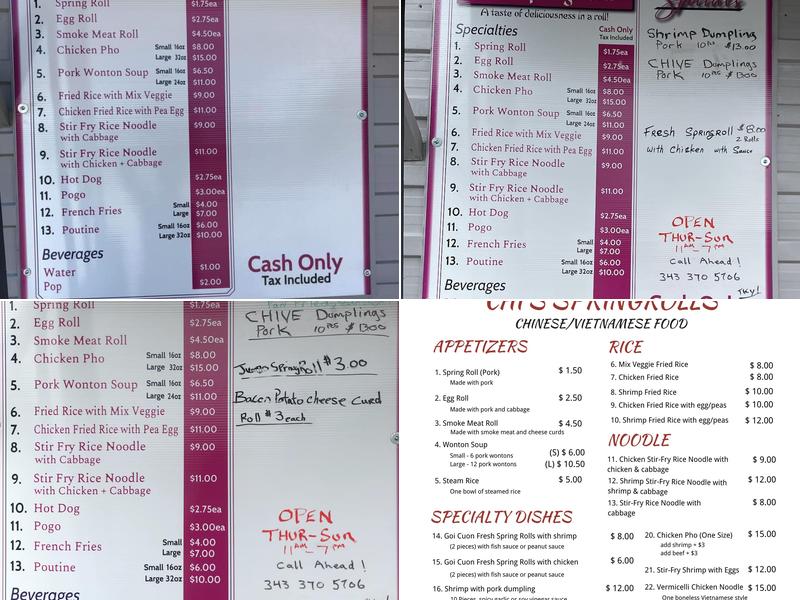 1. Spring Roll $1.75ea
2. Egg Roll $2.75ea
3. Smoke Meat Roll $4.50ea
4. Chicken Pho Small 16oz $8.00
Large 32oz $15.00
5. Pork Wonton Soup Small 16oz $6.50
Large 24oz $11.00
6. Fried Rice with Mix Veggie $9.00
7. Chicken Fried Rice with Pea Egg $11.00
8. Stir Fry Rice Noodle $9.00
with Cabbage
9. Stir Fry Rice Noodle $11.00
with Chicken + Cabbage
10. Hot Dog $2.75ea
11. Pogo $3.00ea
12. French Fries Small $4.00
Large $7.00
13. Poutine Small 16oz $6.00
Large 32oz $10.00
Beverages
Water $1.00
Pop $2.00
Cash Only
Tax Included
A taste of deliciousness in a roll!
Specialties
Cash Only
Tax Included
1. Spring Roll $1.75ea
2. Egg Roll $2.75ea
3. Smoke Meat Roll $4.50ea
4. Chicken Pho Small 16oz $8.00
Large 32oz $15.00
5. Pork Wonton Soup Small 16oz $6.50
Large 24oz $11.00
6. Fried Rice with Mix Veggie $9.00
7. Chicken Fried Rice with Pea Egg $11.00
8. Stir Fry Rice Noodle $9.00
with Cabbage
9. Stir Fry Rice Noodle $11.00
with Chicken + Cabbage
10. Hot Dog $2.75ea
11. Pogo $3.00ea
12. French Fries Small $4.00
Large $7.00
13. Poutine Small 16oz $6.00
Large 32oz $10.00
Beverages
Specials
Shrimp Dumpling
Pork 10pcs $13.00
CHIVE Dumplings
Pork 10pcs $1300
Fresh Springroll $8.00
2 Rolls
with Chicken with Sauce
OPEN
THUR-SUN
11AM - 7PM
Call Ahead!
343 370 5706
TKy!
1. Spring Roll $1.75ea
2. Egg Roll $2.75ea
3. Smoke Meat Roll $4.50ea
4. Chicken Pho Small 16oz $8.00
Large 32oz $15.00
5. Pork Wonton Soup Small 16oz $6.50
Large 24oz $11.00
6. Fried Rice with Mix Veggie $9.00
7. Chicken Fried Rice with Pea Egg $11.00
8. Stir Fry Rice Noodle $9.00
with Cabbage
9. Stir Fry Rice Noodle $11.00
with Chicken + Cabbage
10. Hot Dog $2.75ea
11. Pogo $3.00ea
12. French Fries Small $4.00
Large $7.00
13. Poutine Small 16oz $6.00
Large 32oz $10.00
Beverages
CHIVE Dumplings
Pork 10pcs $1300
Springroll $3.00
Bacon Potato cheese Curd
Roll $3 each
OPEN
THUR-SUN
11AM - 7PM
Call Ahead!
343 370 5706
CHI'S SPRINGROLLS
CHINESE/VIETNAMESE FOOD
APPETIZERS
1. Spring Roll (Pork) $ 1.50
Made with pork
2. Egg Roll $ 2.50
Made with pork and cabbage
3. Smoke Meat Roll $ 4.50
Made with smoke meat and cheese curds
4. Wonton Soup
Small - 6 pork wontons (S) $ 6.00
Large - 12 pork wontons (L) $ 10.50
5. Steam Rice $ 5.00
One bowl of steamed rice
SPECIALTY DISHES
14. Goi Cuon Fresh Spring Rolls with shrimp $ 8.00
(2 pieces) with fish sauce or peanut sauce
15. Goi Cuon Fresh Spring Rolls with chicken $ 6.00
(2 pieces) with fish sauce or peanut sauce
16. Shrimp with pork dumpling $ 12.00
10 Pieces, spicy garlic or soy vinegar sauce
RICE
6. Mix Veggie Fried Rice $ 8.00
7. Chicken Fried Rice $ 8.00
8. Shrimp Fried Rice $ 10.00
9. Chicken Fried Rice with egg/peas $ 10.00
10. Shrimp Fried Rice with egg/peas $ 12.00
NOODLE
11. Chicken Stir-Fry Rice Noodle with $ 9.00
chicken & cabbage
12. Shrimp Stir-Fry Rice Noodle with $ 12.00
shrimp & cabbage
13. Stir-Fry Rice Noodle with $ 8.00
cabbage
20. Chicken Pho (One Size) $ 15.00
add shrimp + $3
add beef + $3
21. Stir-Fry Shrimp with Eggs $ 12.00
22. Vermicelli Chicken Noodle $ 15.00
One boneless Vietnamese style